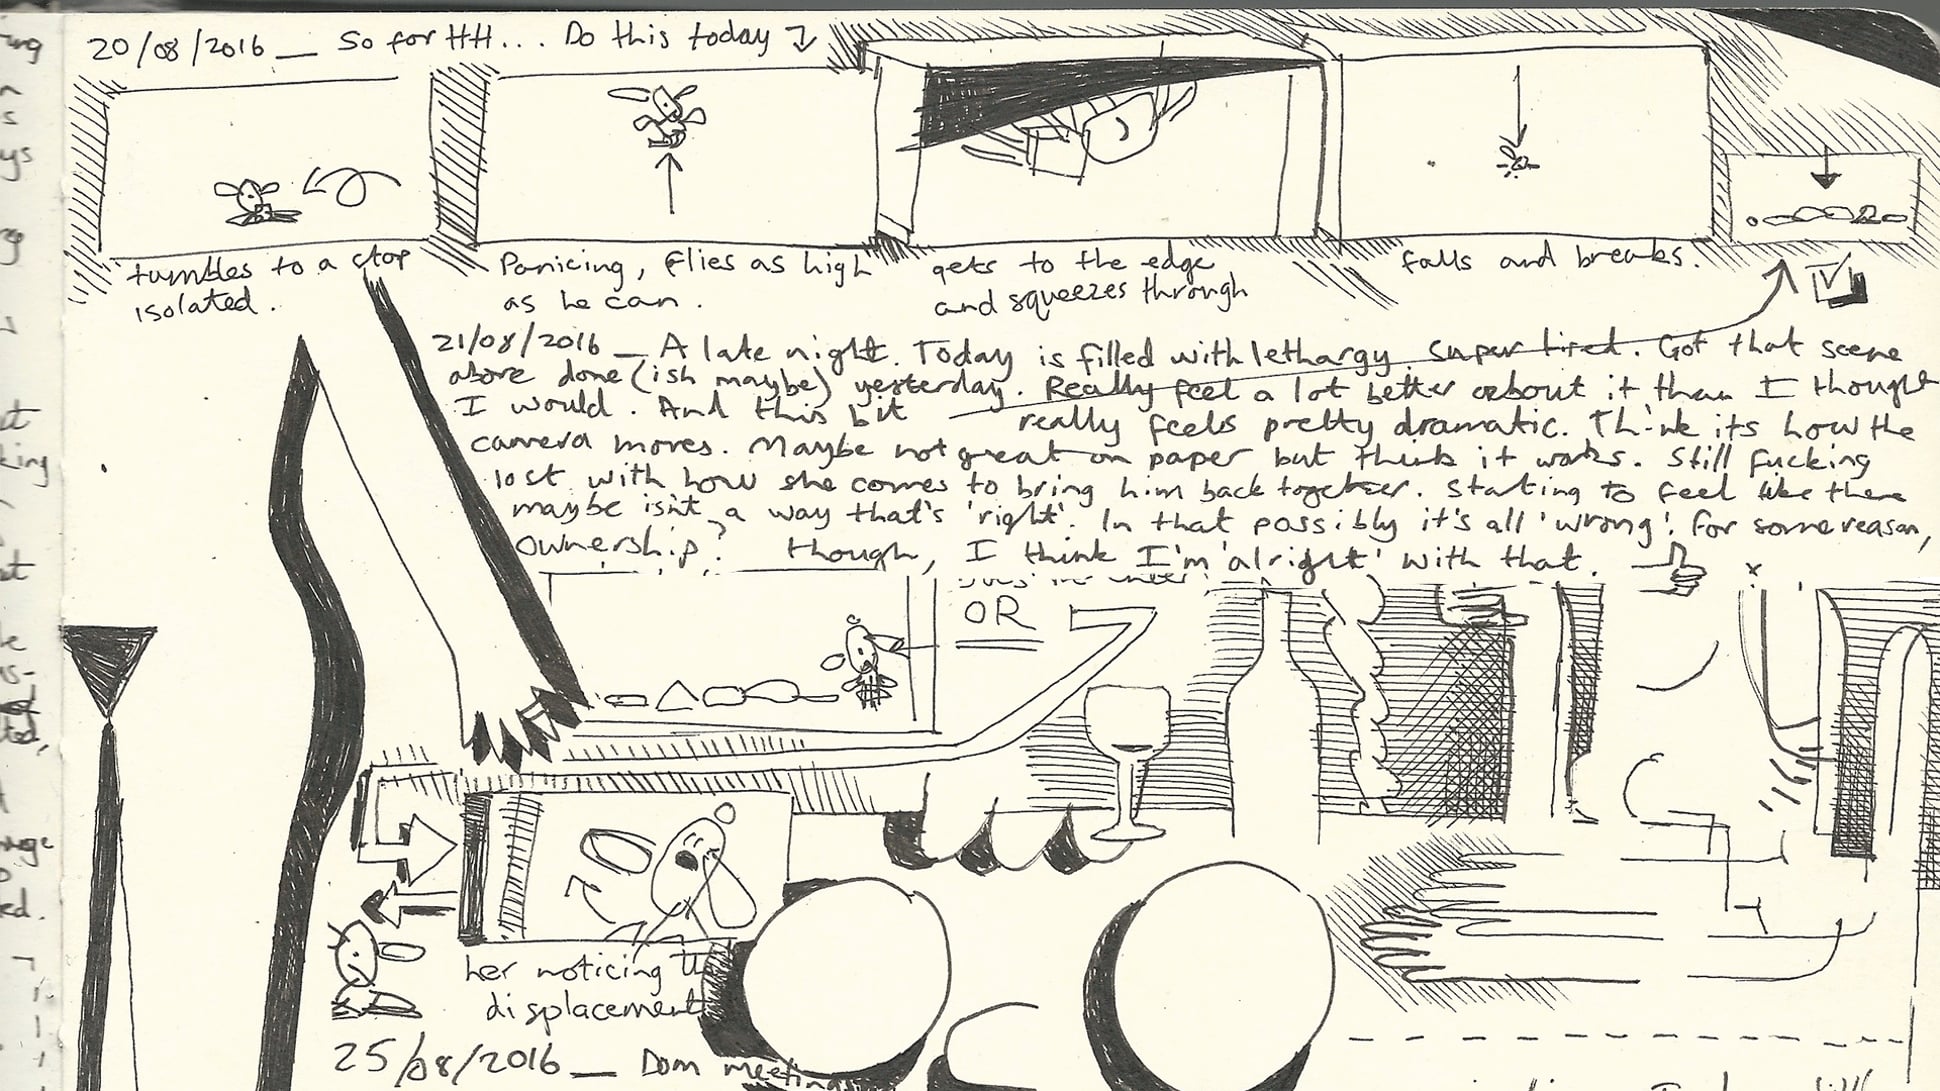 20/08/2016 _ So for HH... Do this today
tumbles to a stop
isolated.
Panicing, flies as high
as he can.
gets to the edge
and squeezes through
falls and breaks.
21/08/2016 _ A late night. Today is filled with lethargy. Super tired. Got that scene
above done (ish maybe) yesterday. Really feel a lot better about it than I thought
I would. And this bit really feels pretty dramatic. Think its how the
camera moves. Maybe not great on paper but think it works. Still fucking
lost with how she comes to bring him back together. Starting to feel like there
maybe isn't a way that's 'right'. In that possibly it's all 'wrong'. For some reason,
ownership? though, I think I'm 'alright' with that.
OR
her noticing
displacement
25/08/2016 _ Dom meeting